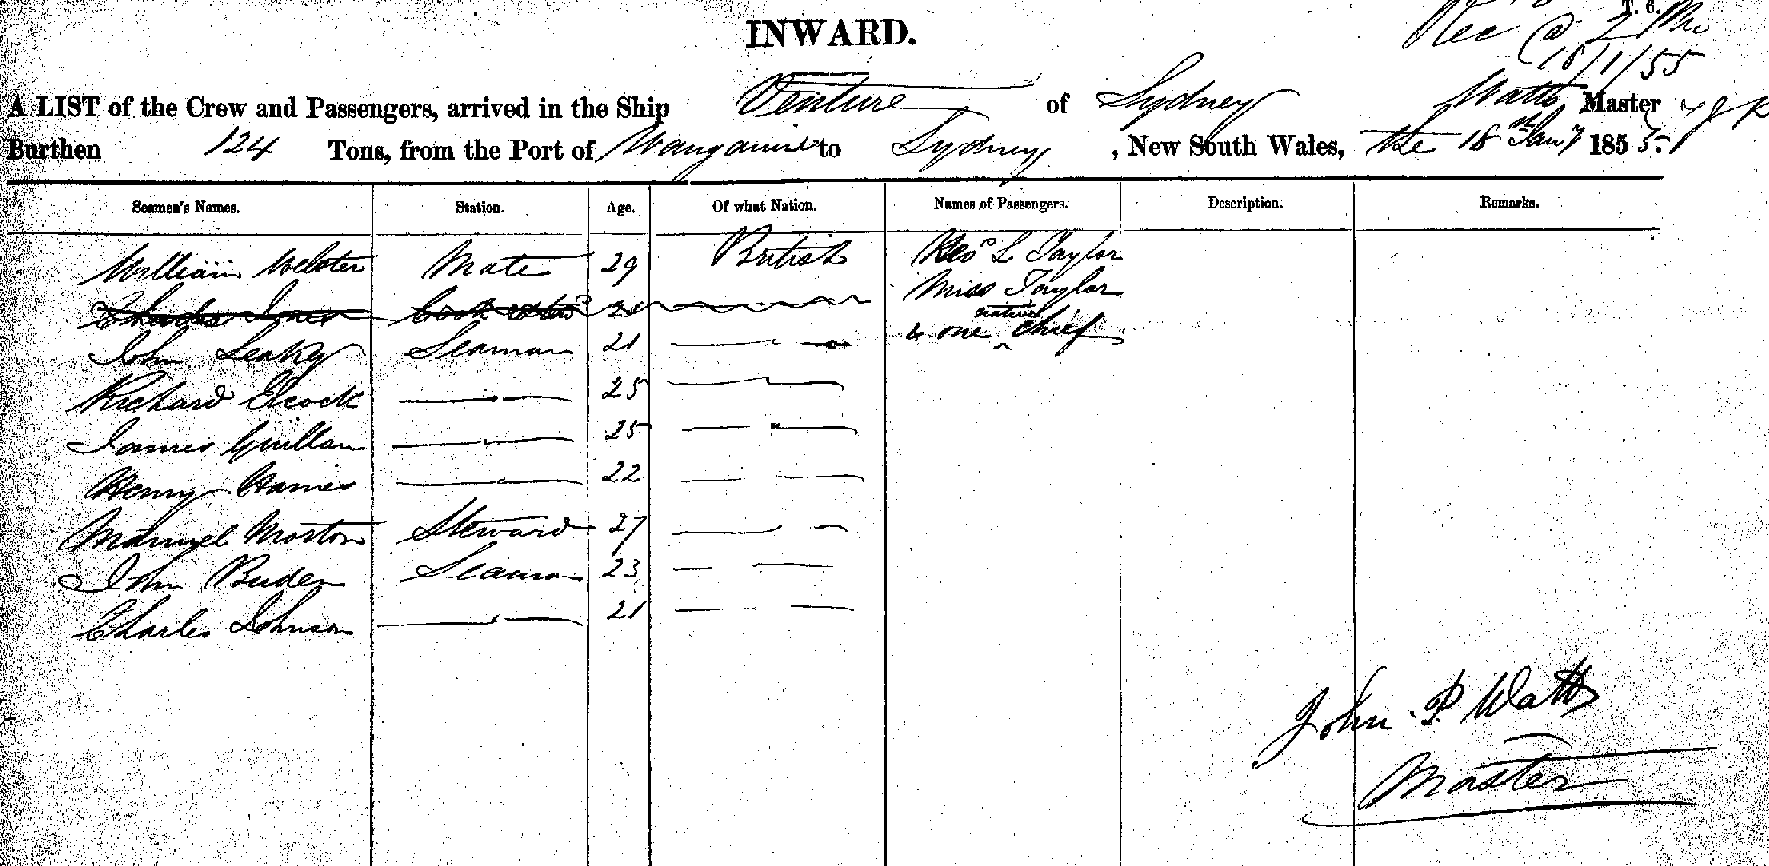 T. 6.
INWARD.
Rec @ 2 PM
18/1/55
A LIST of the Crew and Passengers, arrived in the Ship Venture of Sydney Watts Master
Burthen 124 Tons, from the Port of Wanganui to Sydney, New South Wales, the 18th Jany 1855
Seamen's Names. Station. Age. Of what Nation. Names of Passengers. Description. Remarks.
William Webster Mate 29 British Revd Taylor
Miss Taylor
Charles Cook
native
John Leaky Seaman 21 & one chief
Richard 25
James 25
Henry 22
Morton Steward 27
John Seaman 23
Charles Johnson 21
John P. Watts
Master